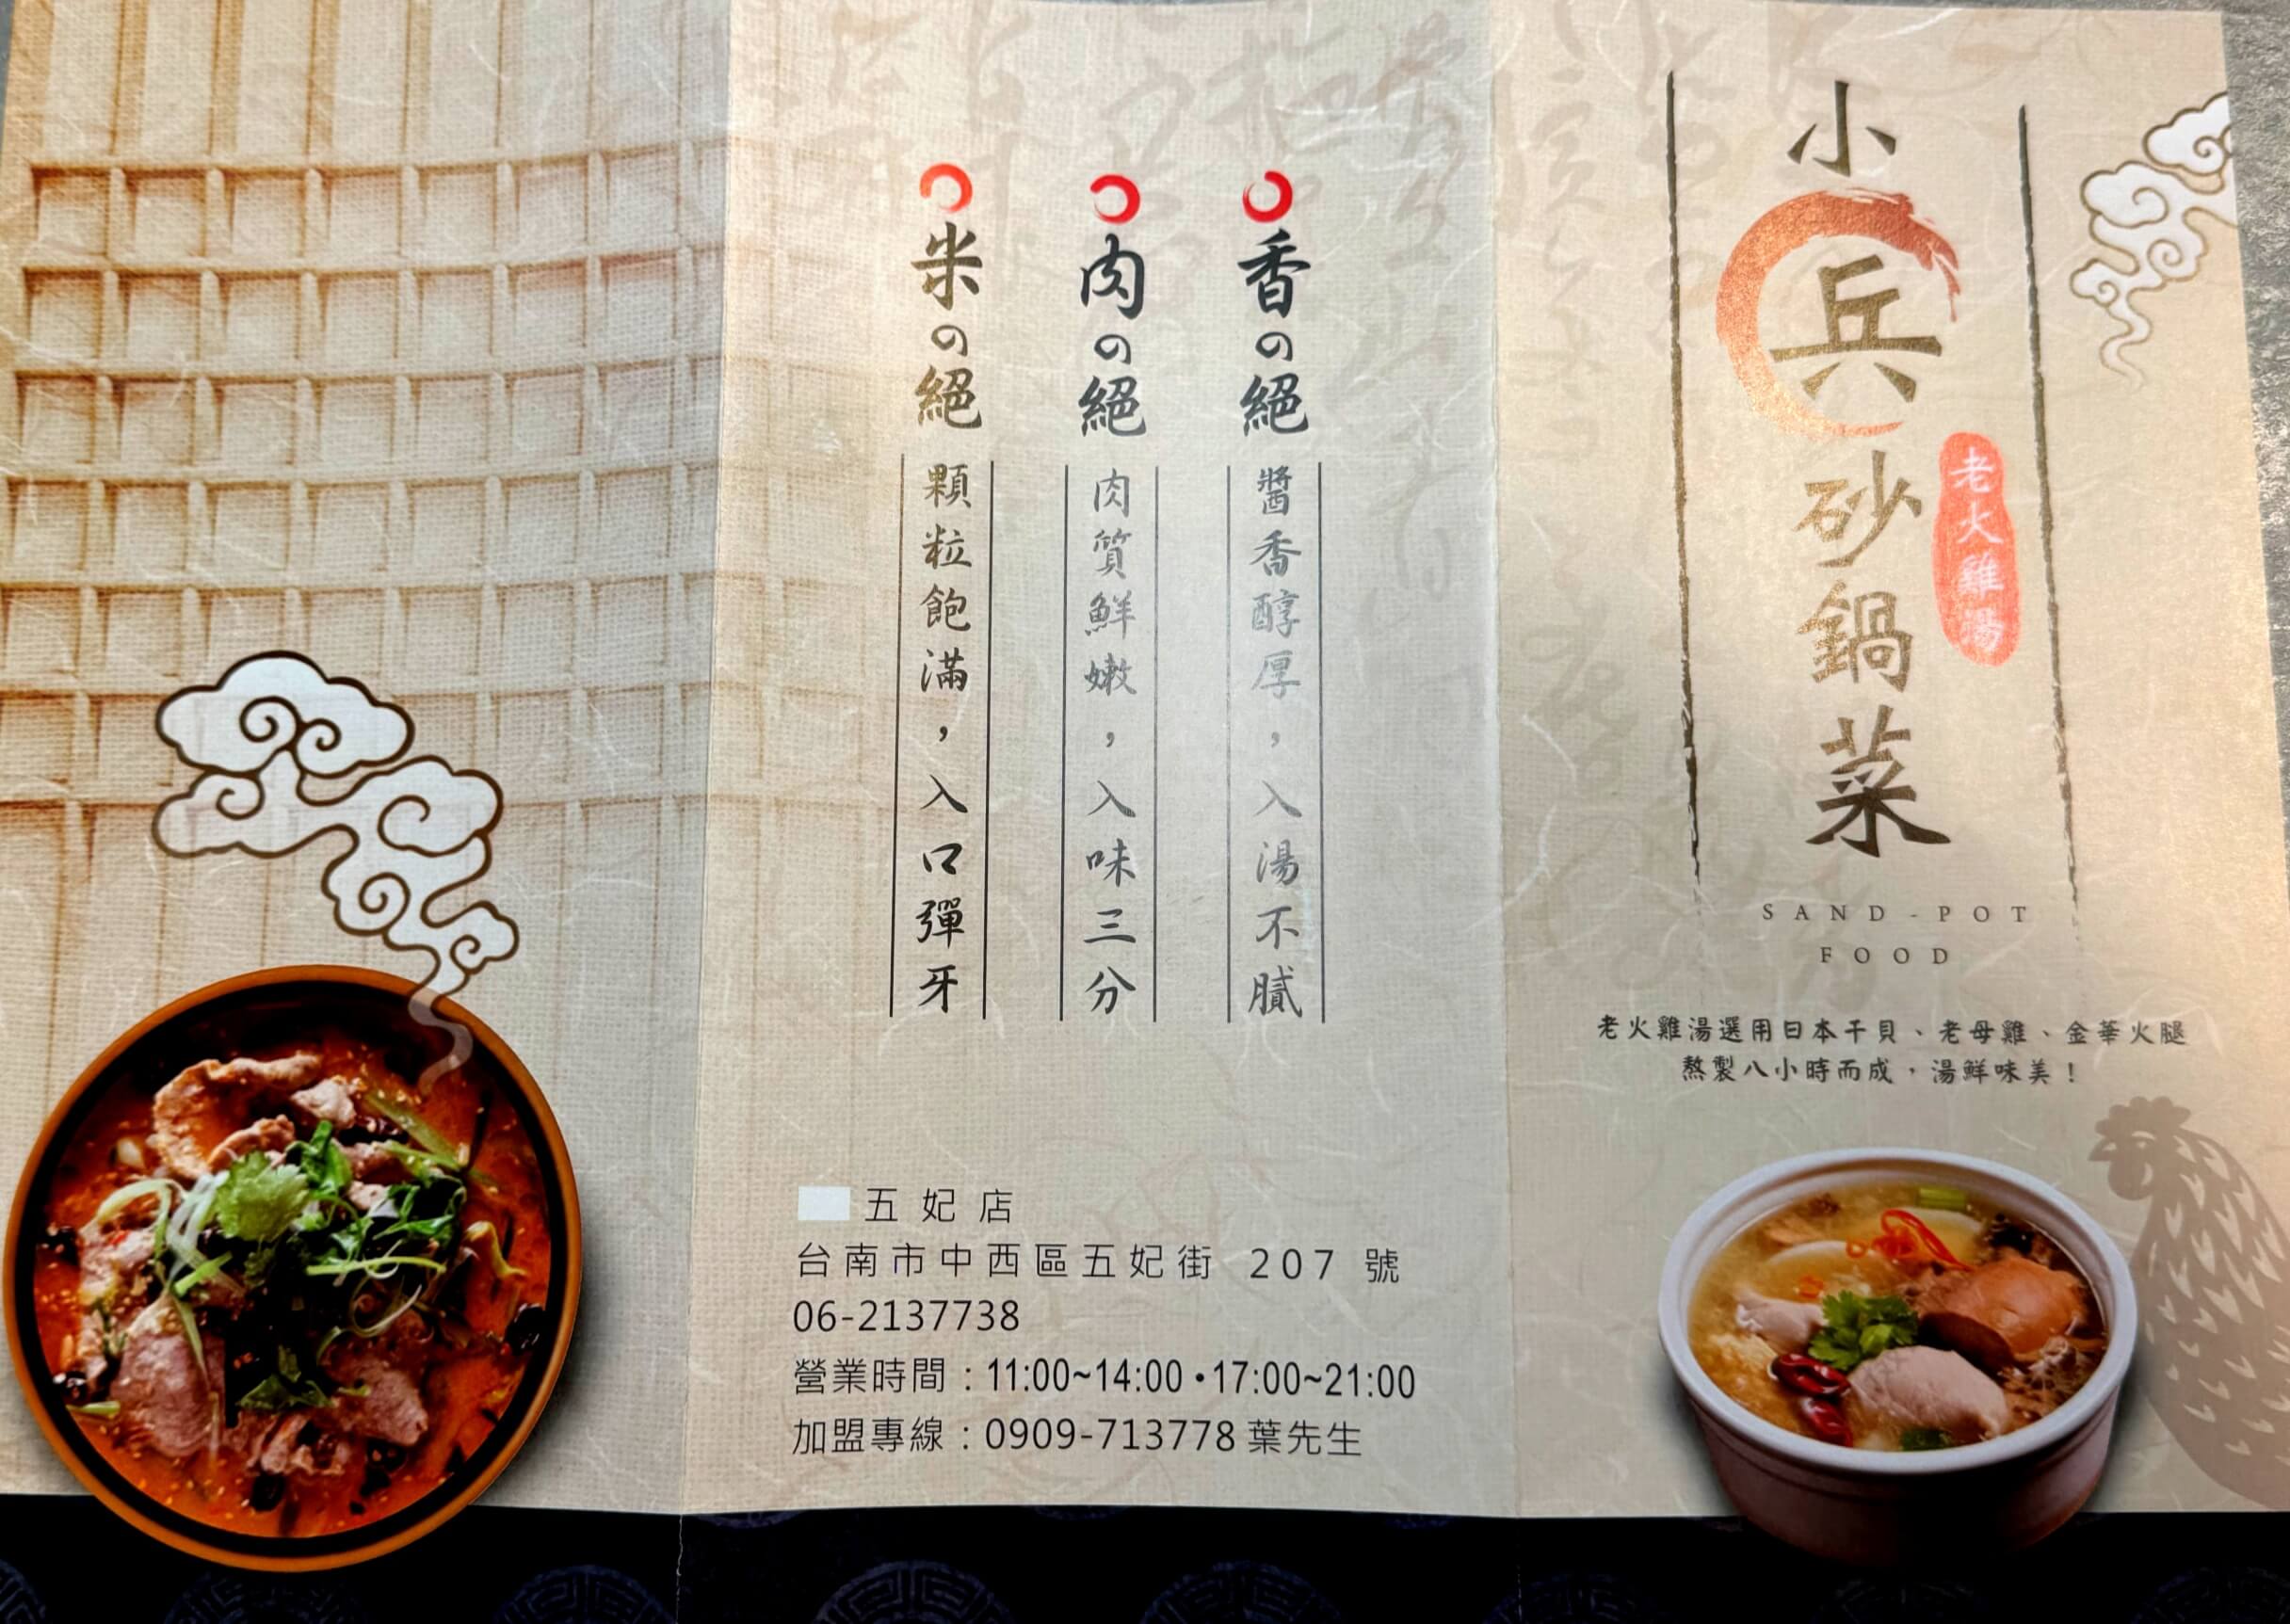 小兵砂鍋菜
老火雞湯
SAND-POT
FOOD
老火雞湯選用日本干貝、老母雞、金華火腿
熬製八小時而成，湯鮮味美！
香の絕
醬香醇厚，入湯不膩
肉の絕
肉質鮮嫩，入味三分
米の絕
顆粒飽滿，入口彈牙
五妃店
台南市中西區五妃街 207 號
06-2137738
營業時間：11:00~14:00•17:00~21:00
加盟專線：0909-713778 葉先生